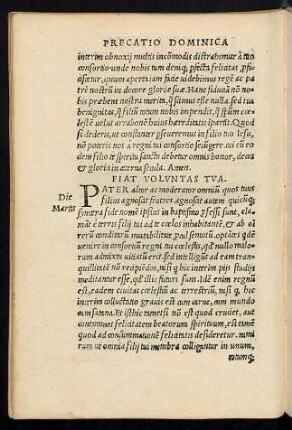 PRECATIO DOMINICA
interim obnoxij multis incõmodis distrahimur à tuo
consortio: unde nobis tum deniq; pfecta felicitas, pfi-
ciscetur, quum apertam facie uidebimus regẽ ac pa-
trẽ nostrũ in decore gloriæ suæ. Hanc fiduciã non no
bis præbent nostra merita, quæ scimus esse nulla, sed tua
benignitas, q̃ filiũ totum nobis impendit, q̃ spiritũ cœle-
stẽ uelut arrabonẽ huius hæreditatis iparti. Quod
si dederis, ut constanter perseueremus in filio tuo Iesu,
nõ poteris nos à regni tui consortio seiũgere. cui cũ eo
dem filio & spiritu sancto debetur omnis honor, decus
& gloria in æterna secula. Amen.
FIAT VOLVNTAS TVA.
Die
Martis
PATER altor ac moderator omniũ quos tuus
filius agnoscit fratres, agnoscit autem quicũq;
syncæra fide nomẽ ipsius in baptismo professi sunt, cla-
mãt è terris filij tui ad te cœlos inhabitantẽ, & ab o-
rerũ conditarũ mutabilitate procul semotũ, optãtes qdẽ ue
nire in consortiũ regni tui cœlestis, qđ nullo malorum
admixtu uitiatur: sed intelligũt ad eam tranquillita-
tem nõ recipiẽdos, nisi q hic interim pijs studijs
meditantur esse, qđ illic futuri sunt. Idẽ enim regnũ
est, tametsi aliud cœlestiũ ac terrestriũ, nisi q, hic
interim colluctatio grauis est cum carne, cum mundo
cum satana. Et isthic tametsi nõ est quod cruciet, aut
contaminet felicitatem beatorum spirituum, est tamẽ
quod ad consummationẽ felicitatis desideretur. nimi-
rum ut omnia filij tui membra colligantur in unum,
totumq;